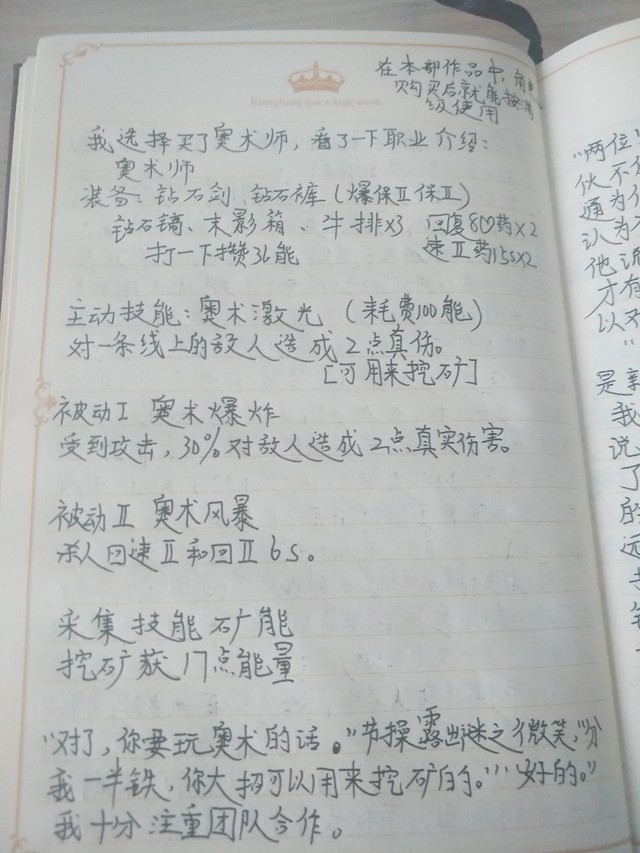 在本部作品中,
购买后就能按满
级使用
Everybody has a high mind.
我选择买了奥术师,看了一下职业介绍:
奥术师
装备:钻石剑、钻石裤(爆保Ⅱ保Ⅱ)
钻石镐、末影箱、牛排×3 回复8♡药×2
打一下攒36能 速Ⅱ药15s×2
主动技能:奥术激光 (耗费100能)
对一条线上的敌人造成2点真伤。
[可用来挖矿]
被动Ⅰ 奥术爆炸
受到攻击,30%对敌人造成2点真实伤害。
被动Ⅱ 奥术风暴
杀人回速Ⅱ和回Ⅱ6s。
采集技能 矿能
挖矿获17点能量
“对了,你要玩奥术的话。”节操露出谜之微笑,“分
我一半铁,你大招可以用来挖矿的。”“好的。”
我十分注重团队合作。
“两位
伙不
通为
认为
他流
才有
以对
”
是亲
我
说
了
的
远